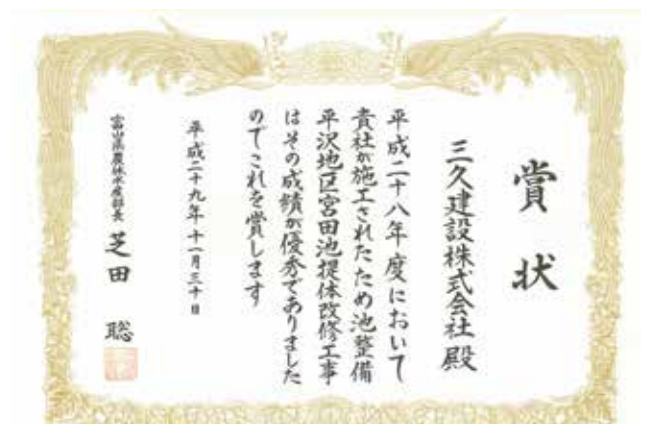 賞状
三久建設株式会社殿
平成二十八年度において
貴社が施工されたため池整備
平沢地区宮田池提体改修工事
はその成績が優秀でありました
のでこれを賞します
平成二十九年十一月三十日
富山県農林水産部長 芝田 聡